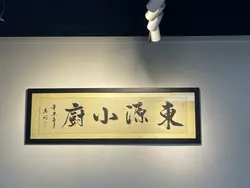 東源小廚